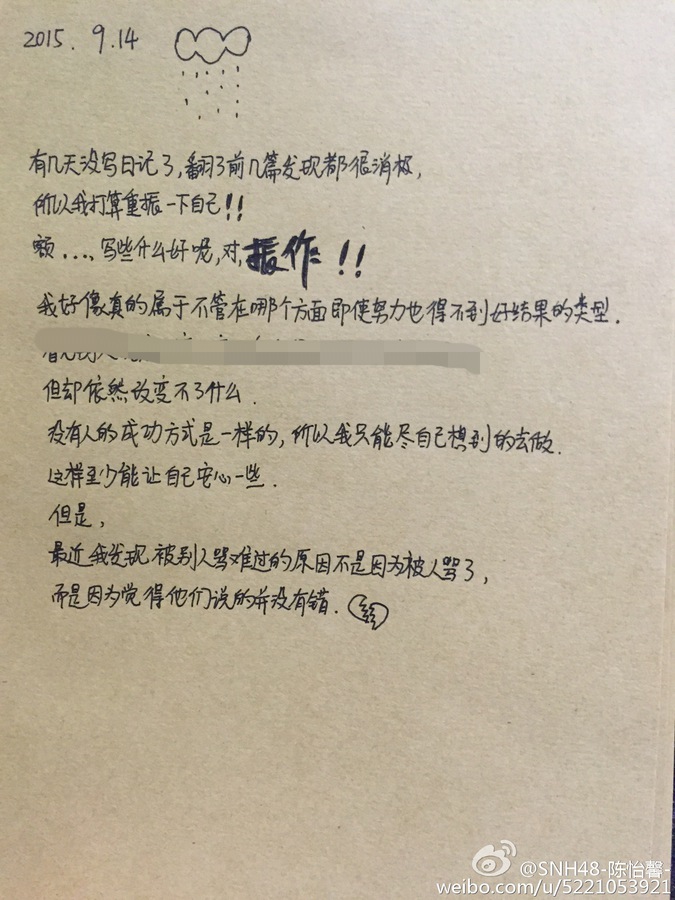 2015. 9.14
有几天没写日记了,翻了前几篇发现都很消极,
所以我打算重振一下自己!!
额....,写些什么好呢,对,振作!!
我好像真的属于不管在哪个方面即使努力也得不到好结果的类型.
但却依然改变不了什么.
没有人的成功方式是一样的,所以我只能尽自己想到的去做.
这样至少能让自己安心一些.
但是,
最近我发现被别人骂难过的原因不是因为被人骂了,
而是因为觉得他们说的并没有错.
@SNH48-陈怡馨-
weibo.com/u/5221053921